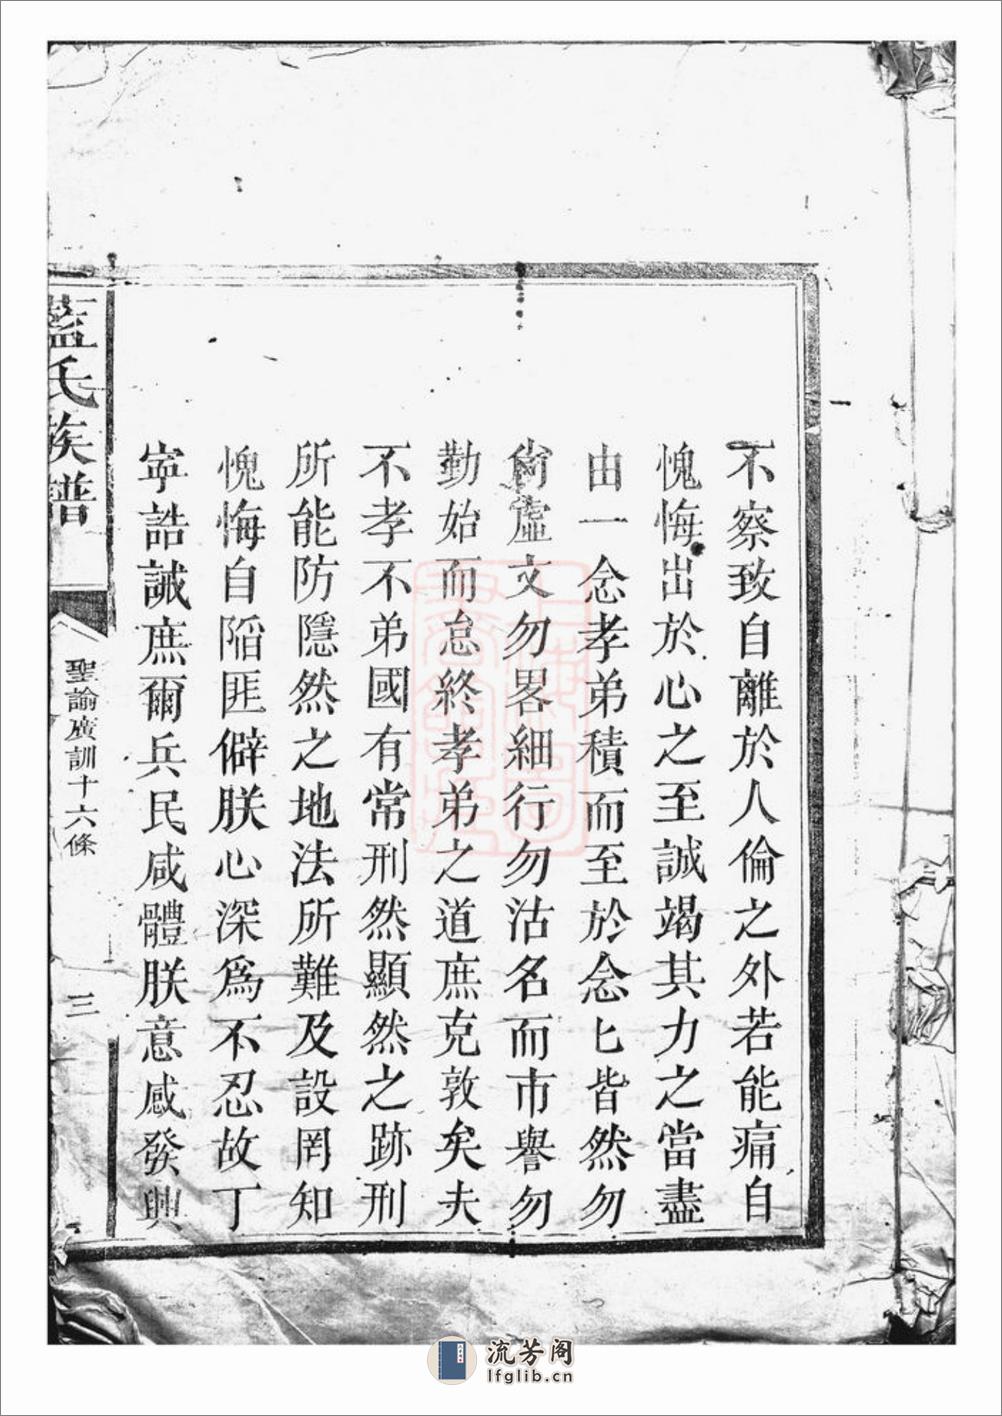 不察致自離於人倫之外若能痛自
愧悔出於心之至誠竭其力之當盡
由一念孝弟積而至於念匕皆然勿
尚虛文勿畧細行勿沽名而市譽勿
勤始而怠終孝弟之道庶克敦矣夫
不孝不弟國有常刑然顯然之跡刑
所能防隱然之地法所難及設罔知
愧悔自陷匪僻朕心深爲不忍故丁
寧誥誡庶爾兵民咸體朕意感發興
藍氏族譜
聖諭廣訓十六條
三
流芳阁
lfglib.cn